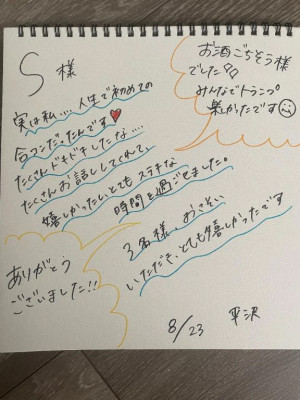 S様
実は私‥‥人生で初めての
合コンだったんです♥
たくさんドキドキしたな‥‥
たくさんお話ししてくれて、
嬉しかったしとても ステキな
時間を過ごせました。
お酒ごちそう様
でした
みんなでトランプ
楽しかったです☺
3名様、おさそい
いただき、とても嬉しかったです
ありがとう
ございました!!
8/23 平沢